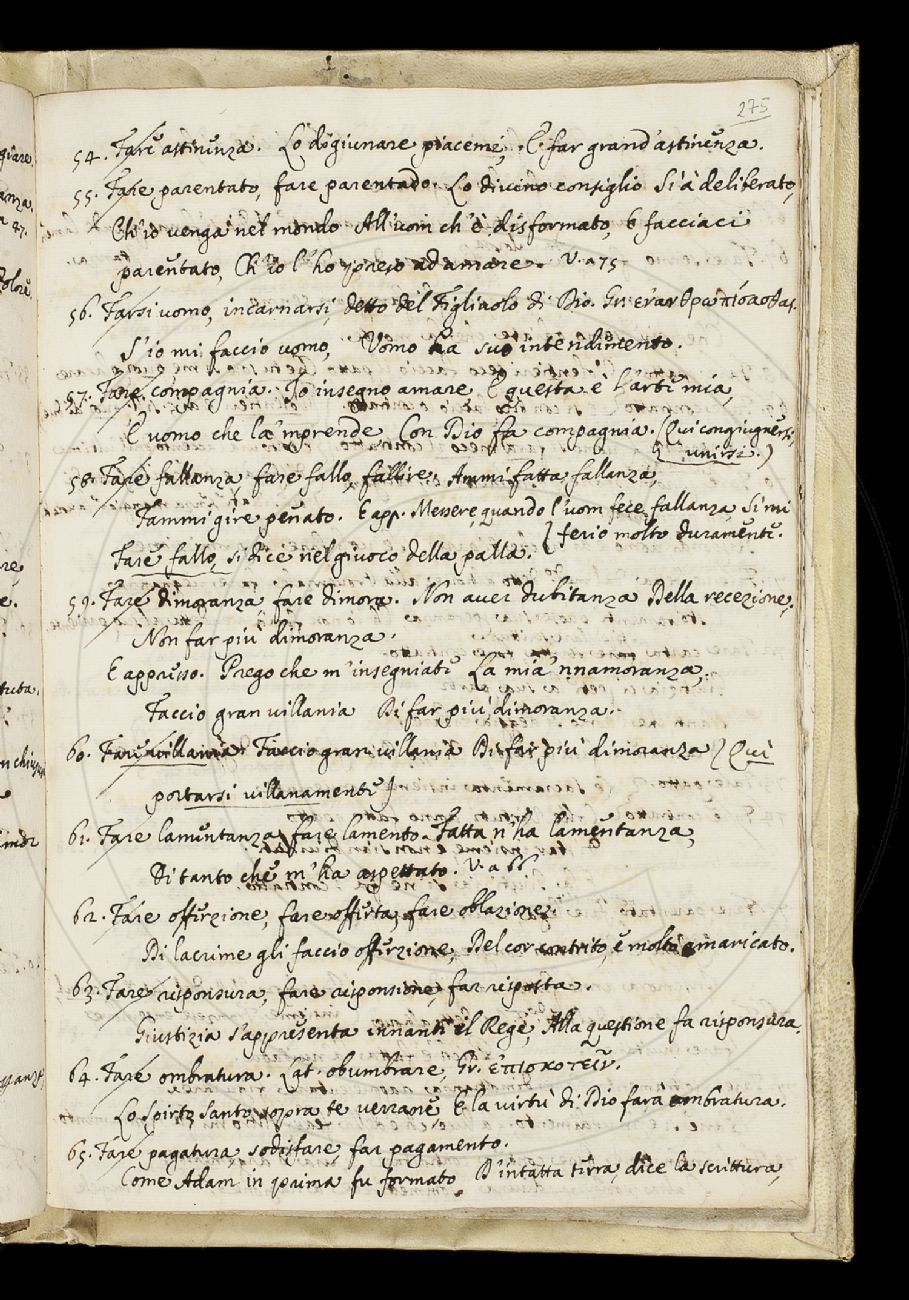 275
54. Fare astinenza. Lo digiunare piacemi, E far grand'astinenza.
55. Fare parentato, fare parentado. Lo divino consiglio Si à deliberato,
Ch'io venga nel mondo All'uom ch'è disformato, E facciaci
parentato, Ch'io l'ho preso ad amare. V. a 75
56. Farsi uomo, incarnarsi, detto del Figliuolo di Dio. Gr.
S'io mi faccio uomo, Uomo ha suo intendimento.
57. Fare compagnia. Io insegno amare E questa è l'arte mia,
E uomo che la 'mprende Con Dio fa compagnia. (Qui congiugnersi,
unirsi.)
58. Fare fallanza, fare fallo, fallire. Ammi fatta fallanza,
Fammi gire penato. E app. Messere, quando l'uom fece fallanza Si mi
ferio molto duramente.
Fare fallo, si dice nel giuoco della palla.
59. Fare dimoranza, fare dimora. Non aver dubitanza Della recezione,
Non far più dimoranza.
E appresso. Prego che m'insegniate La mia 'nnamoranza,
Faccio gran villania Di far più dimoranza.
60. Fare villania. Faccio gran villania Di far più dimoranza (Qui
portarsi villanamente)
61. Fare lamentanza, fare lamento. Fatta n'ha lamentanza,
Di tanto che m'ha aspettato. V. a 66
62. Fare offerzione, fare offerta, fare oblazione.
Di lacrime gli faccio offerzione, Del cor contrito, e molto amaricato.
63. Fare risponsura, fare risponsione, far risposta.
Giustizia s'appresenta innanti el Rege, Alla questione fa risponsura.
64. Fare ombratura. Lat. obumbrare, Gr. ἐπισκοτεῖν.
Lo Spirto Santo sopra te verrane E la virtù di Dio farà ombratura.
65. Fare pagatura, sodisfare, far pagamento.
Come Adam in prima fu formato D'intatta terra, dice la scrittura,